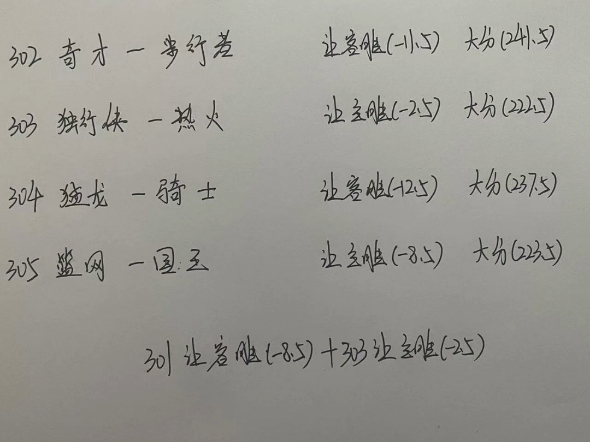 302 奇才 — 步行者 让客胜(-11.5) 大分(241.5)
303 独行侠 — 热火 让主胜(-2.5) 大分(222.5)
304 猛龙 — 骑士 让客胜(-12.5) 大分(237.5)
305 篮网 — 国王 让主胜(-8.5) 大分(223.5)
301 让客胜(-8.5) + 303 让主胜(-2.5)